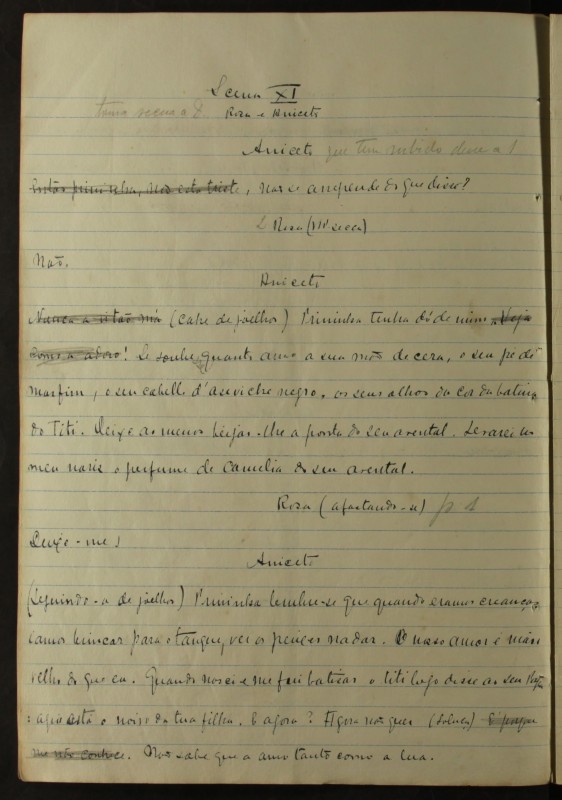 Scena XI
Rosa e Aniceto
Aniceto que tem subido desce a 1
Então priminha, não está triste, não se arrepende do que disse?
2 Rosa (1º secca)
Não.
Aniceto
Nunca a vi tão má (cahe de joelhos) Priminha tenha dó de mim. Veja
como a adoro! Se soubesse quanto amo a sua mão de cera, o seu pé de
marfim, o seu cabello d'azeviche negro, os seus olhos da cor da batina
do Titi. Deixe ao menos beijar-lhe a ponta do seu avental. Levarei no
meu nariz o perfume de camelia do seu avental.
Rosa (afastando-se) p. 1
Deixe-me!
Aniceto
(Seguindo-a de joelhos) Priminha lembre-se que quando eramos creanças,
iamos brincar para o tanque, ver os peixes nadar. O nosso amor é mais
velho do que eu. Quando nasci e me fui batisar o titi logo disse ao seu
: aqui está o noivo da tua filha. E agora? Agora não quer (soluça) É porque
me não conhece. Não sabe que a amo tanto como a lua.